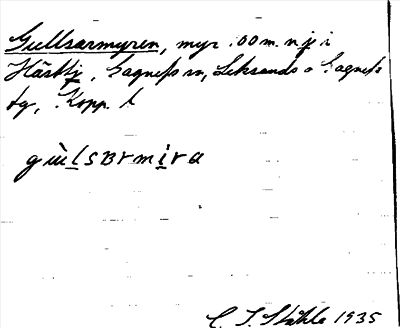 Gullsarmyren, myr 100 m. n. je i
Hästbj, Gagnefs sn, Leksands o Gagnefs
tg, Kopp. l
gùlsarmira
C. I. Ståhle 1935